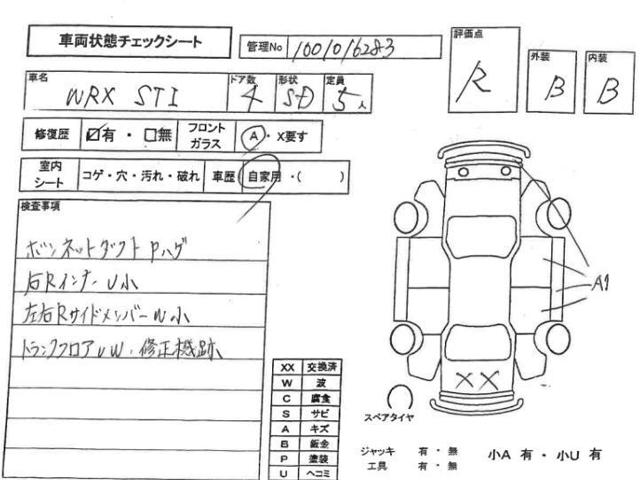 車両状態チェックシート
管理No 1001016283
評価点 R
外装 B
内装 B
車名 WRX STI
ドア数 4
形状 SD
定員 5人
修復歴 ☑有・□無
フロントガラス A・X要す
室内シート コゲ・穴・汚れ・破れ
車歴 自家用・( )
検査事項
ボンネットダクト Pハゲ
右RインナーU小
左右RサイドメンバーW小
トランクフロアUW・修正機跡
A1
XX
スペアタイヤ
XX 交換済
W 波
C 腐食
S サビ
A キズ
B 鈑金
P 塗装
U ヘコミ
ジャッキ 有・無
工具 有・無
小A 有・小U 有